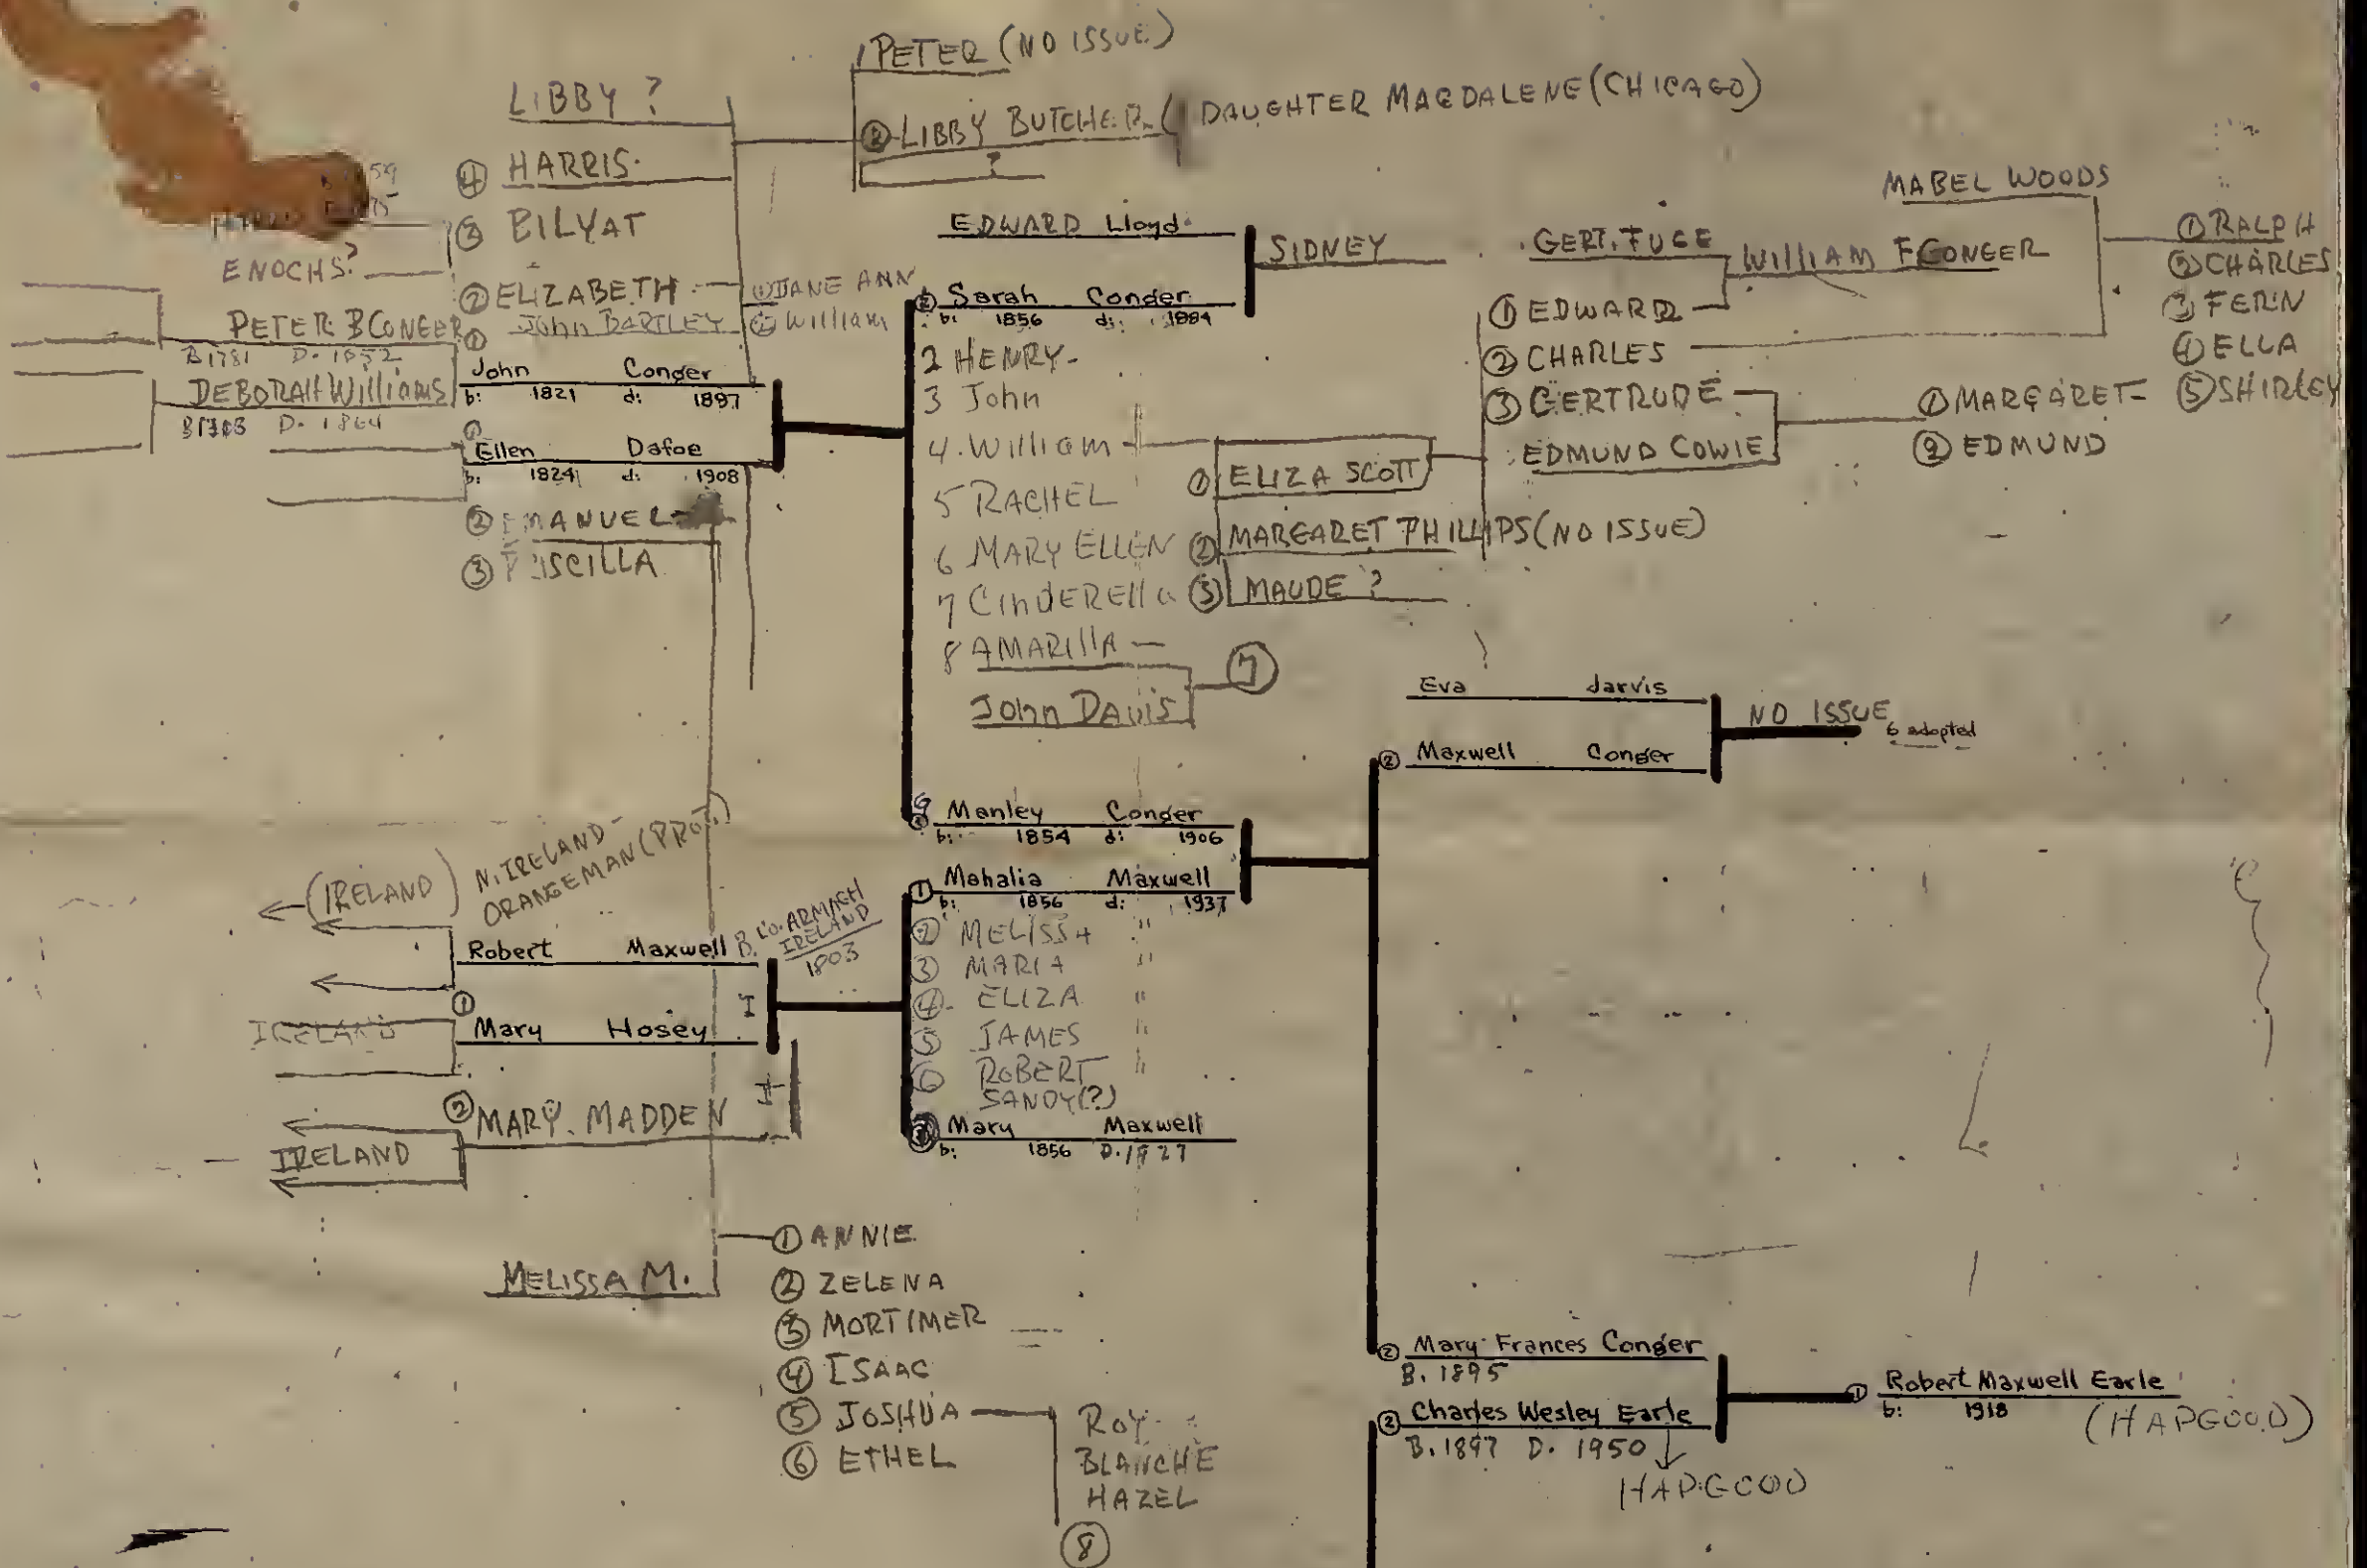 1 PETER (NO ISSUE)
LIBBY ?
② LIBBY BUTCHER ( 1 DAUGHTER MAGDALENE (CHICAGO)
?
④ HARRIS.
③ BILYAT
ENOCHS?
② ELIZABETH
① JANE ANN
John BARTLEY
② William
PETER B CONGER
B 1781 D. 1852
DEBORAH Williams
D. 1864
① John Conger
b: 1821 d: 1897
① Ellen Dafoe
b: 1824 d: 1908
② EMANUEL
③ PRISCILLA
EDWARD Lloyd
SIDNEY
② Sarah Conger
b: 1856 d: 1884
2 HENRY-
3 John
4. William
5 RACHEL
6 MARY ELLEN
7 CINDERElla
8 AMARIllA —
John DAVIS
⑦
① ELIZA SCOTT
② MARGARET PHILLIPS (NO ISSUE)
③ MAUDE ?
GERT. FUGE
WILLIAM F CONGER
① EDWARD
② CHARLES
③ GERTRUDE
EDMUND COWIE
① MARGARET
② EDMUND
MABEL WOODS
① RALPH
② CHARLES
③ FERIN
④ ELLA
⑤ SHIRLEY
Eva Jarvis
NO ISSUE
6 adopted
② Maxwell Conger
9 Manley Conger
b: 1854 d: 1906
① Mahalia Maxwell
b: 1856 d: 1937
② MELISSA "
③ MARIA "
④ ELIZA "
⑤ JAMES "
⑥ ROBERT "
SANDY(?)
Mary Maxwell
b: 1856 D. 1927
(IRELAND)
N. IRELAND-
ORANGEMAN (PROT.)
Robert Maxwell
B. CO. ARMAGH
IRELAND
1803
I
① Mary Hosey
IRELAND
② MARY MADDEN
IRELAND
MELISSA M.
① ANNIE
② ZELENA
③ MORTIMER
④ ISAAC
⑤ JOSHUA
⑥ ETHEL
ROY
BLANCHE
HAZEL
⑧
② Mary Frances Conger
B. 1895
② Charles Wesley Earle
B. 1897 D. 1950
HAPGOOD
① Robert Maxwell Earle
b: 1918
(HAPGOOD)